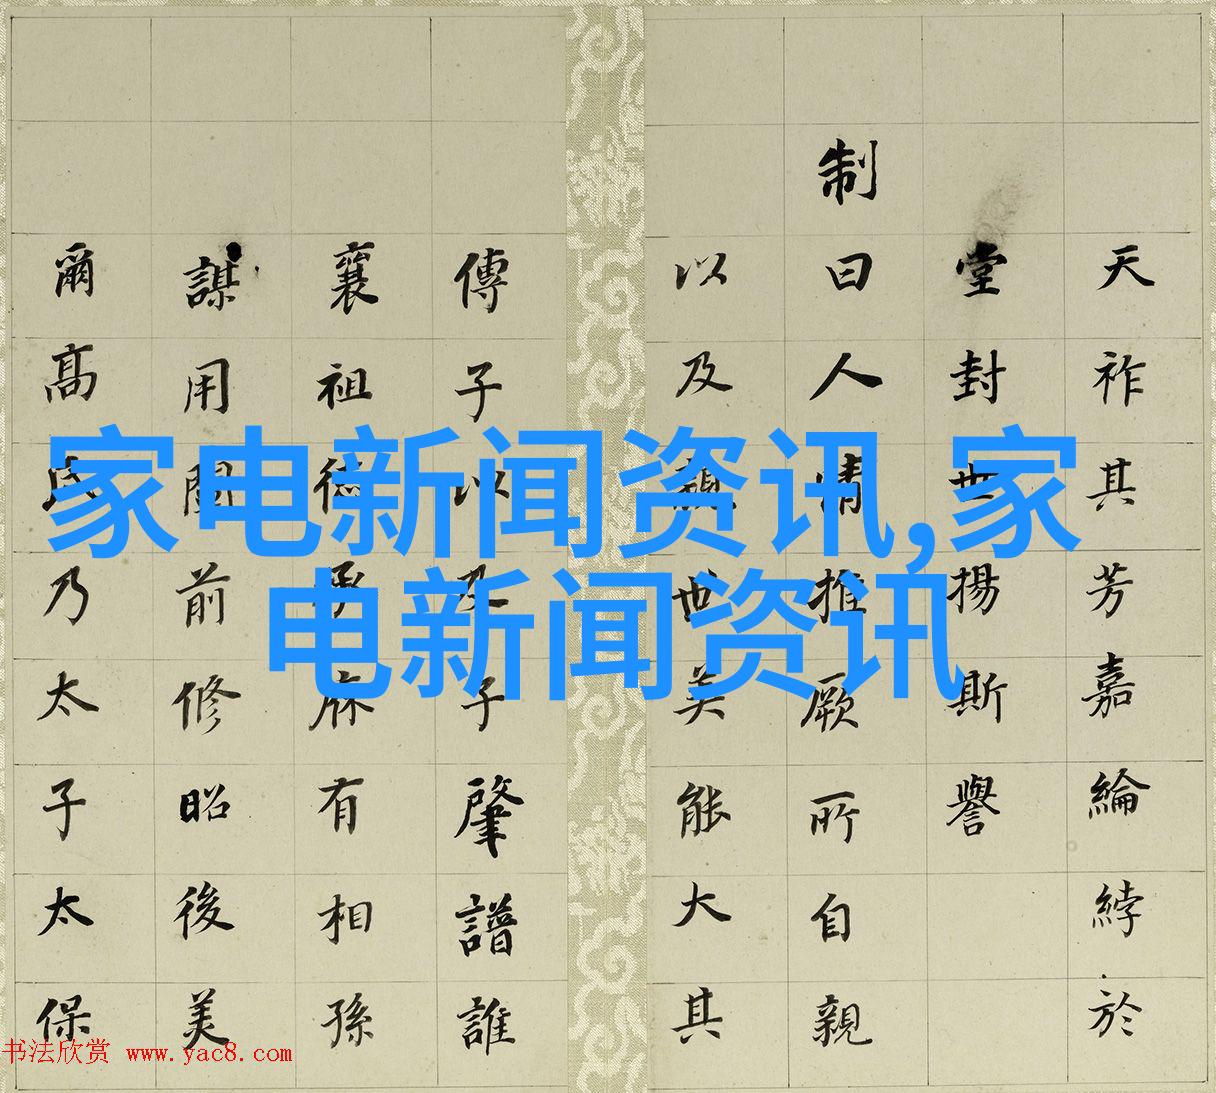 天祚其芳嘉綸綍於
堂封世揚斯譽
制曰人情推厥所自親
以及世美能大其
傳子以及子肇譜誰
襄祖德庥有相孫
謀用前修昭後美
爾高氏乃太子太保
家电新闻资讯,家
电新闻资讯
书法欣赏 www.yac8.com